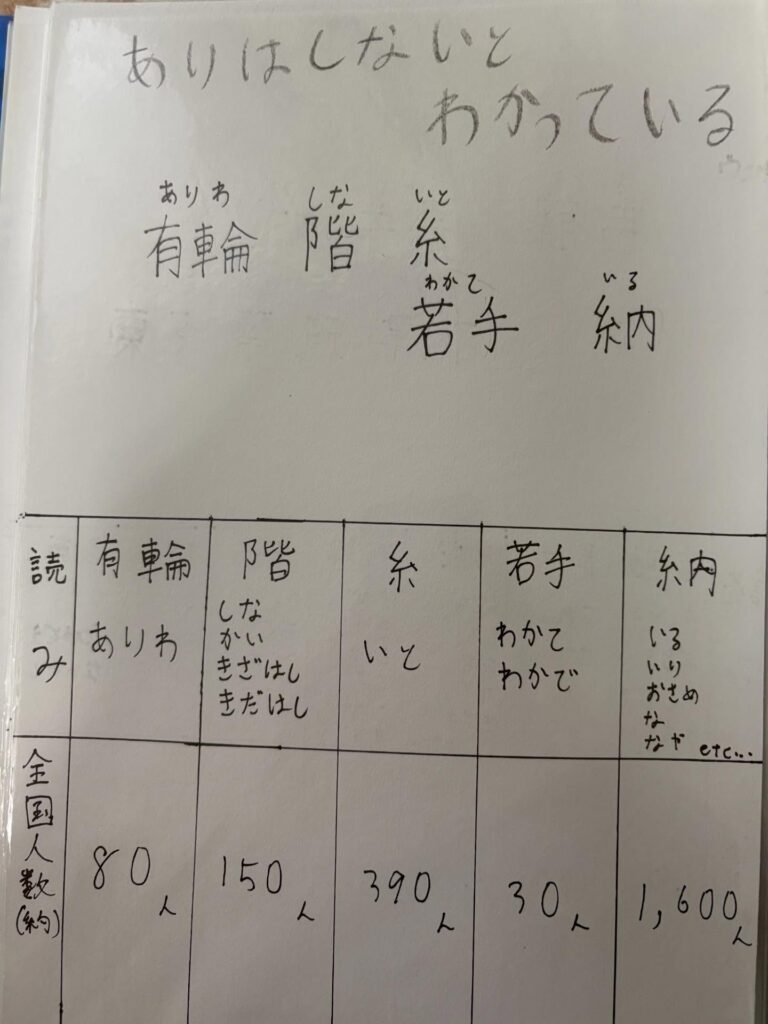 ありはしないと
わかっている
ありわ しな いと
有輪 階 糸
わかて いる
若手 納
読み 有輪 階 糸 若手 納
ありわ しな いと わかて いる
かい わかで いり
きざはし おさめ
きだはし な
なや etc...
全国人数(約) 80人 150人 390人 30人 1,600人